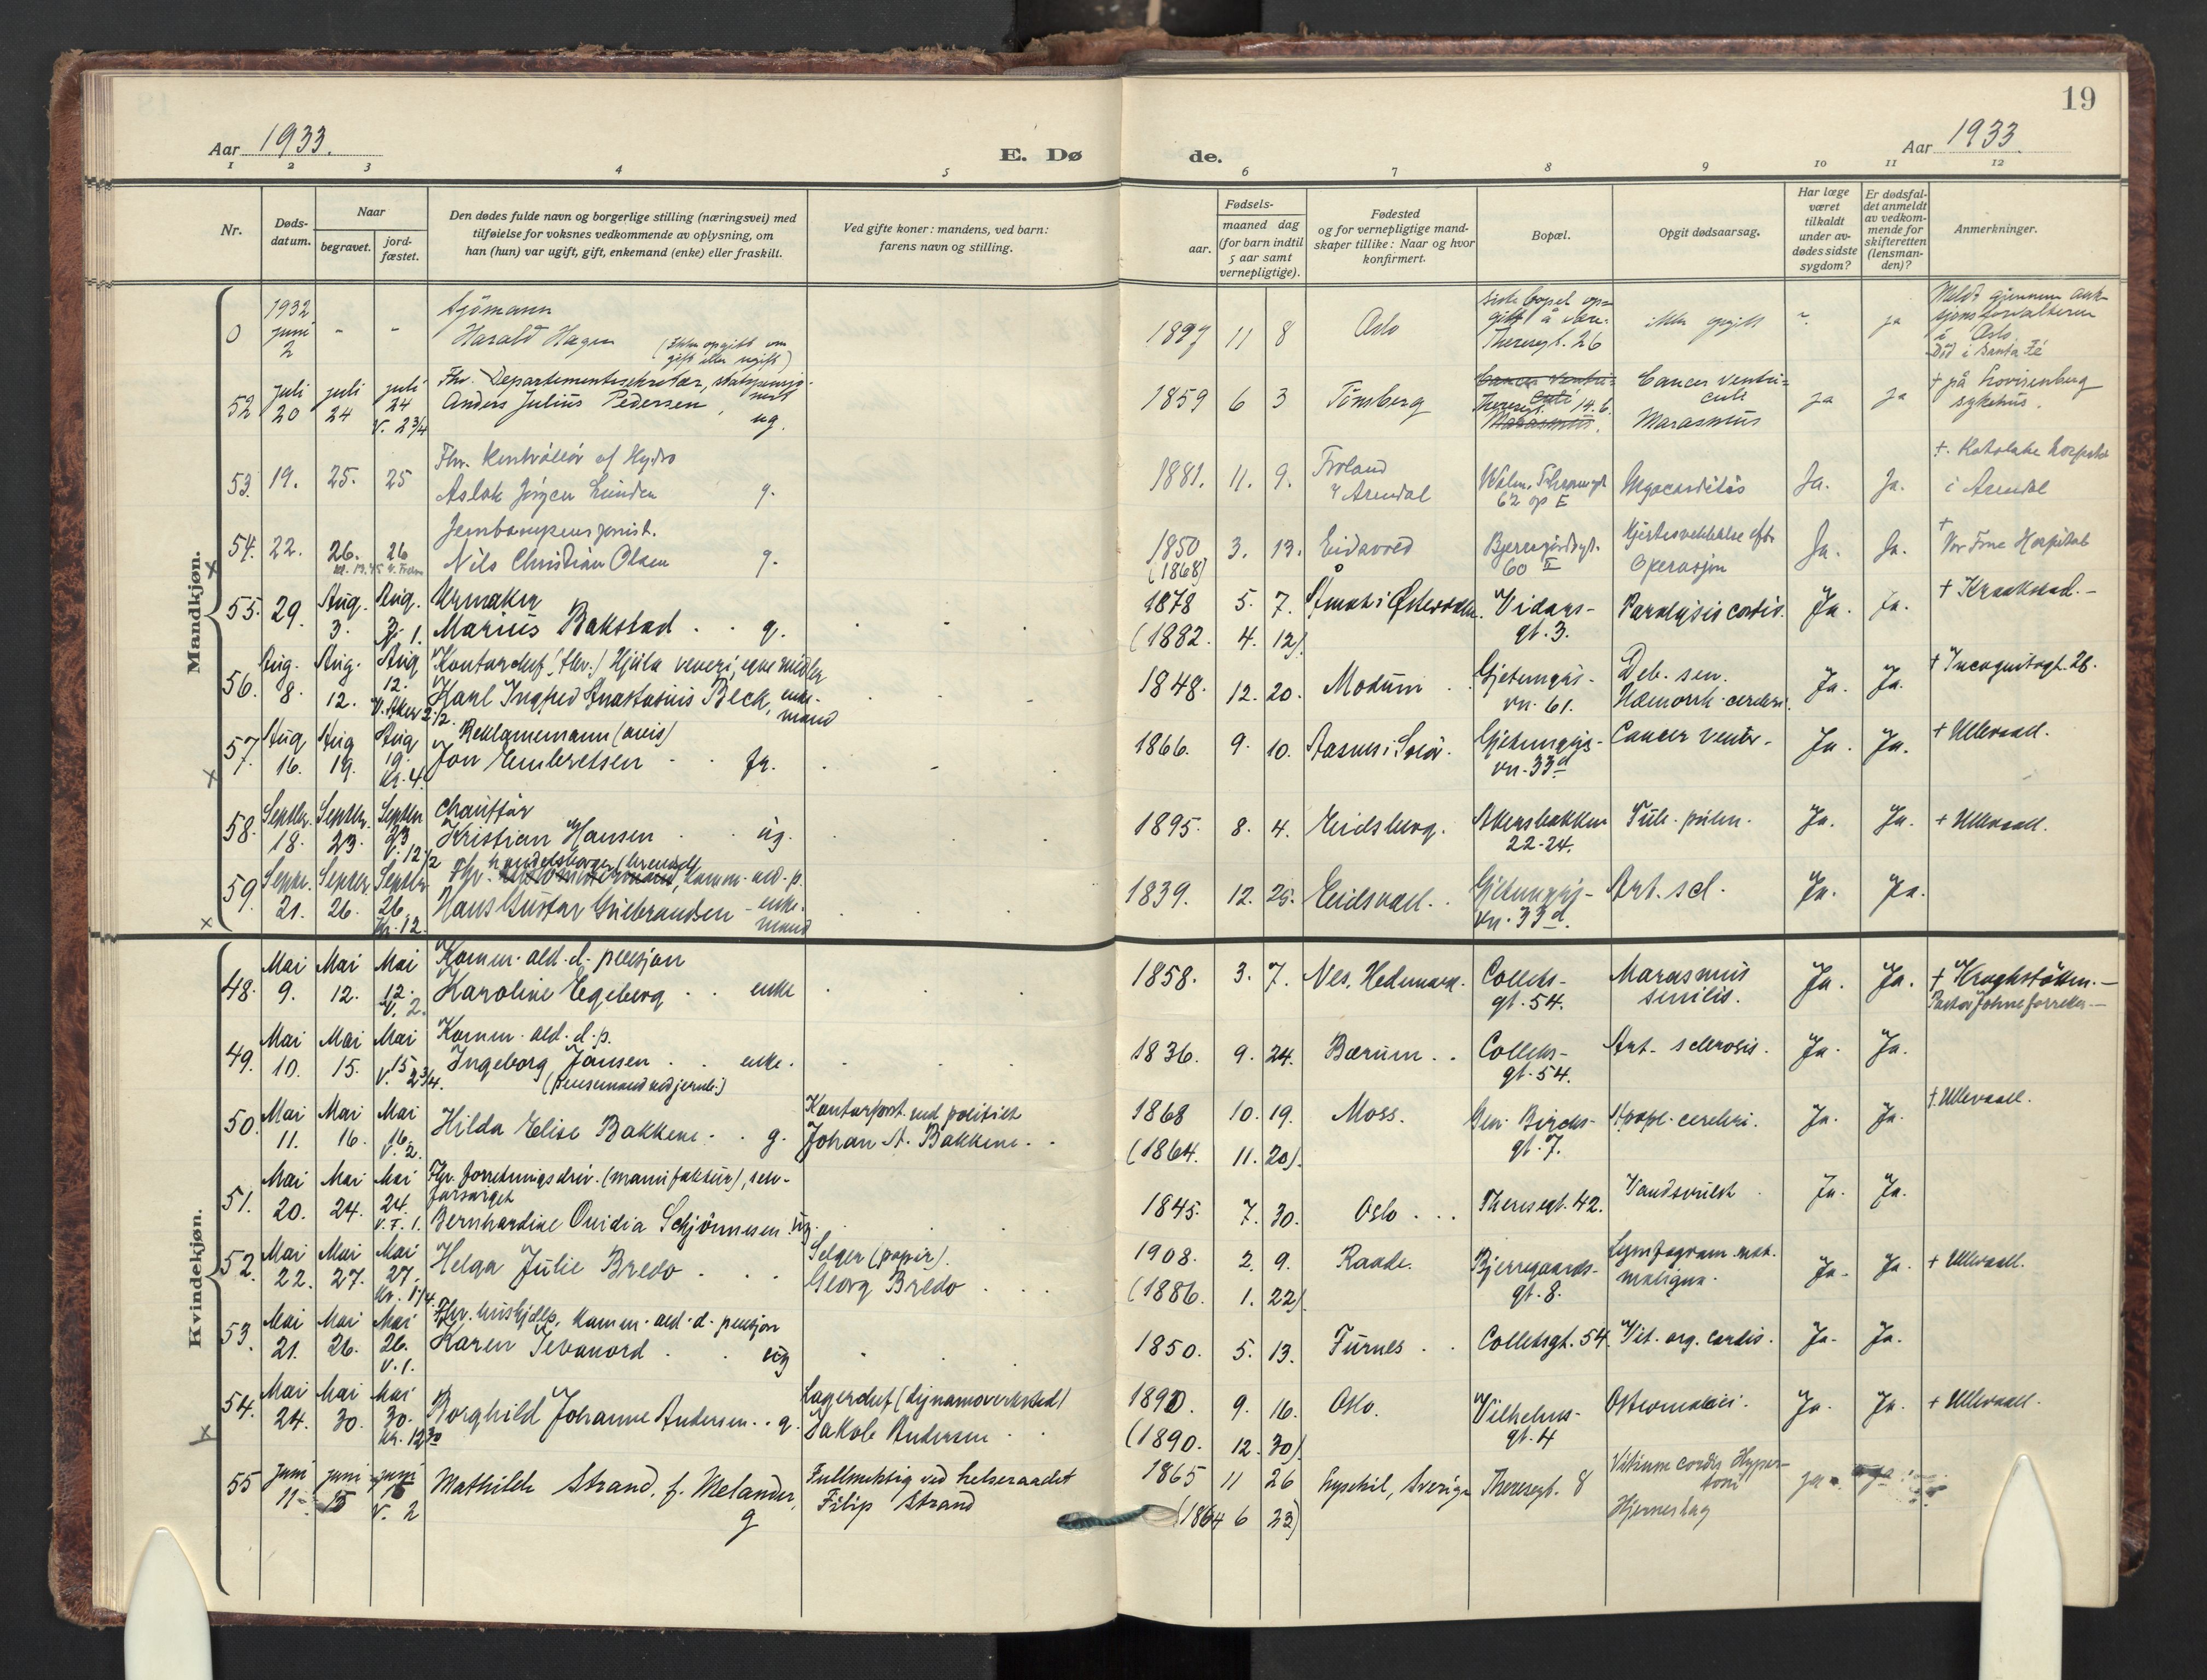 19
Aar 1933.
E. Dø de.
Aar 1933.
1 2 3 4 5 6 7 8 9 10 11 12
Nr.
Døds-
datum.
Naar
begravet.
jord-
fæstet.
Den dødes fulde navn og borgerlige stilling (næringsvei) med
tilføielse for voksnes vedkommende av oplysning, om
han (hun) var ugift, gift, enkemand (enke) eller fraskilt.
Ved gifte koner: mandens, ved barn:
farens navn og stilling.
Fødsels-
aar.
maaned dag
(for barn indtil
5 aar samt
vernepligtige).
Fødested
og for vernepligtige mand-
skaper tillike: Naar og hvor
konfirmert.
Bopæl.
Opgit dødsaarsag.
Har læge
været
tilkaldt
under av-
dødes sidste
sygdom?
Er dødsfal-
det anmeldt
av vedkom-
mende for
skifteretten
(lensman-
den)?
Anmerkninger.
Mandkjøn.
0 1932 juni 2 - - Sjömann
Harald Hagen (Ikke opgitt om
gift eller ugift)
1897 11 8 Oslo siste bopel op-
gitt å være
Theresgt. 26 ikke opgitt ja
Meldt gjennem auk-
sjonsforvalteren
i Oslo.
Död i Santa Fé
52 juli 20 juli 24 juli 24 V. 2 3/4 Fhv. Departementssekretær,
Anders Julius Pedersen, ug.
1859 6 3 Tönsberg Theresgt. 14.b. Cancer ventri-
culi
Marasmus ja ja + på Lovisenberg
sykehus.
53. 19. 25. 25 Fhv. Kontrollör af Hydro
Aslak Jörgen Lunden g.
1881. 11. 9. Froland
v/ Arendal Wilh.
62 op E Ja. Ja. +
i Arendal
54. 22. 26. 26
Nils Christian Olsen g.
1850 3. 13. Eidsvoll Bjerregårdsgt.
60 II Hjertesvekkelse eft.
Operasjon Ja. Ja. + Vor Frue Hospital
(1868)
55. 29. Aug. 3. Aug. 3. Kr 1. Urmaker
Marius Bakstad . . g.
1878 5. 7. Åmot i Østerdalen. Vidars-
gt. 3. Paralysis cordis. Ja. Ja. + Kraakstad.-
(1882. 4. 12).
56. Aug. 8. Aug. 12. Aug. 12. V. Aker 2 1/2. Kontorchef (fhv.) Hjula veveri, egne midler
Karl Ingfred Anastasius Beck, enke-
mand
1848. 12. 20. Modum . Gjetemyrs-
vn. 61. Deb. sen.
Hæmorrh. cerebri. Ja. Ja. + Incognitogt. 28.
57. Aug 16. Aug 19. Aug 19. Kr. 4. Reklamemann (avis)
Jon Embretsen . . fr.
1866. 9. 10. Aasnes i Solør. Gjetemyrs-
vn. 33d Cancer ventr. Ja. Ja. + Ullevaal.
58. Septbr. 18. Septbr. 23. Septbr 23 V. 12 1/2 Chauffør
Kristian Hansen . . ug.
1895. 8. 4. Eidsberg. Akersbakken
22-24. Tub. pulm. Ja. Ja. + Ullevaal.
59. Septbr. 21. Septbr 26. Septbr 26. Kr. 12. Fhv. komm. ald. p.
Hans Gustav Gulbrandsen - enke-
mand
1839. 12. 25. Eidsvall. Gjetemyrs-
vn. 33d. Art. scl. Ja. Ja.
Kvindekjøn.
48. Mai 9. Mai 12. Mai 12. V. 2. Komm. ald. d. pensjon
Karoline Egeberg . . enke
1858. 3. 7. Nes, Hedemark. Colletts-
gt. 54. Marasmus
senilis. Ja. Ja. + Kroghstötten.-
49. Mai 10. Mai 15. Mai 15 V. 2 3/4. Komm. ald. d. p.
Ingeborg Jansen . . enke.
1836. 9. 24. Bærum . . Colletts-
gt. 54. Art. sclerosis. Ja. Ja.
50. Mai 11. Mai 16. Mai 16. V. 2. Hilda Elise Bakkene . . g. Kontorfost. ved politiet
Johan A. Bakkene . .
1868 10. 19. Moss. Gen. Birchs-
gt. 7. Apopl. cerebri. Ja. Ja. + Ullevaal.
(1864. 11. 20).
51. Mai 20. Mai 24. Mai 24. V. F. 1. Fhv. forretningsdriv. (manufaktur), selv-
forsørget
Bernhardine Ovidia Schjönnesen ug.
1845 7. 30. Oslo . . . Theresgt. 42. Vandsvulst . Ja. Ja.
52. Mai 22. Mai 27. Mai 27. Kr. 1 1/4. Helga Julie Bredo . . . Selger (papir).
Georg Bredo . . .
1908. 2. 9. Raade. Bjerregaards-
gt. 8. Lymfogranulomat.
maligna. Ja. Ja. + Ullevaal.
(1886. 1. 22).
53. Mai 21. Mai 26. Mai 26. V. 1. Fhv. hushjelp, komm. ald. d. pensjon
Karen Tevanord . . ug
1850. 5. 13. Furnes . . Collettsgt. 54. Vit. org. cordis. Ja. Ja.
54. Mai 24. Mai 30. Mai 30. Kr. 12 30 Borghild Johanne Andersen . . g. Lagerchef (dynamoverksted)
Jakob Andersen . .
1890. 9. 16. Oslo. Vilhelms-
gt. 4 Osteomalaci. Ja. Ja. + Ullevaal.
(1890. 12. 30).
55 juni 11- juni 15 juni 15 V. 2 Mathilde Strand, f. Melander,
g Fullmektig ved helseraadet
Filip Strand
1865 11 26 Lysekil, Sverige Theresgt. 8 Vitium cordis Hyper-
toni
Hjerneslag ja
(1864 6 23)